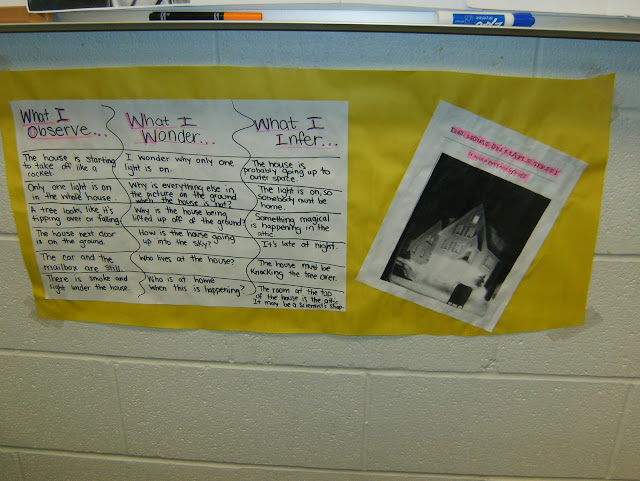 What I
Observe...
The house is starting
to take off like a
rocket.
Only one light is on
in the whole house
A tree looks like it's
tipping over or falling
The house next door
is on the ground.
The car and the
mailbox are still.
There is smoke and
light under the house.
What I
Wonder...
I wonder why only one
light is on.
Why is everything else in
the picture on the ground
when the house is not?
Why is the house being
lifted up off of the ground?
How is the house going
up into the sky?
Who lives at the house?
Who is at home
when this is happening?
What I
Infer...
The house is
probably going up to
outer space.
The light is on, so
somebody must be
home.
Something magical
is happening in the
attic.
It's late at night.
The house must be
knocking the tree over.
The room at the top
of the house is the attic.
It may be a Scientist's shop.
THE HOUSE ON MAPLE STREET
EXPO